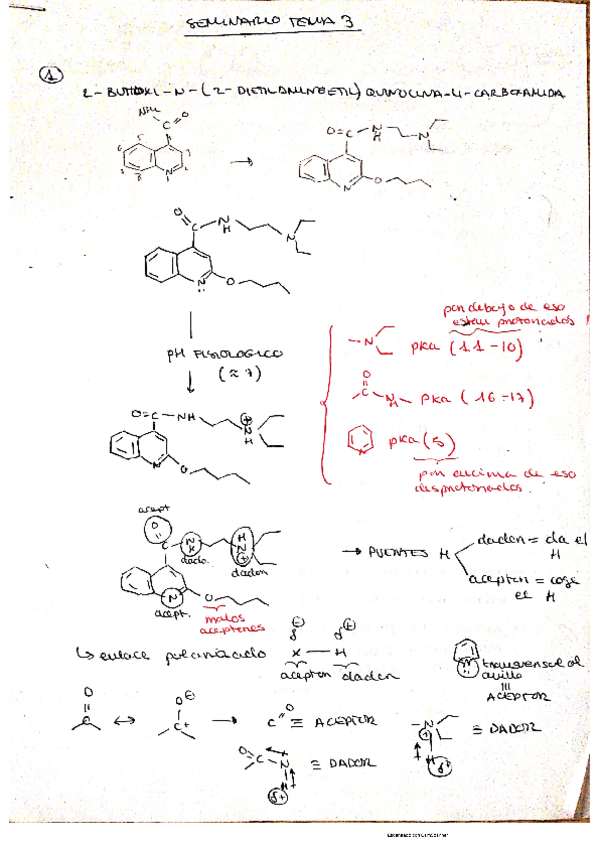 SEMINARIO TEMA 3
1
2-BUTOXI-N-(2-DIETILAMINOETIL)QUINOLINA-4-CARBOXAMIDA
pH FISIOLOGICO
(≈7)
por debajo de eso
estan protonados
pka (11-10)
pka (16-17)
pka (5)
por encima de eso
desprotonados.
acept
dador
dador
acept.
malos
aceptores
→ PUENTES H
dador = da el
H
aceptor = coge
el H
↳ enlace polarizado
δ⊖ δ⊕
X — H
aceptor dador
transversal al
anillo
≡
ACEPTOR
C=O ≡ ACEPTOR
≡ DADOR
≡ DADOR
Escaneado con CamScanner